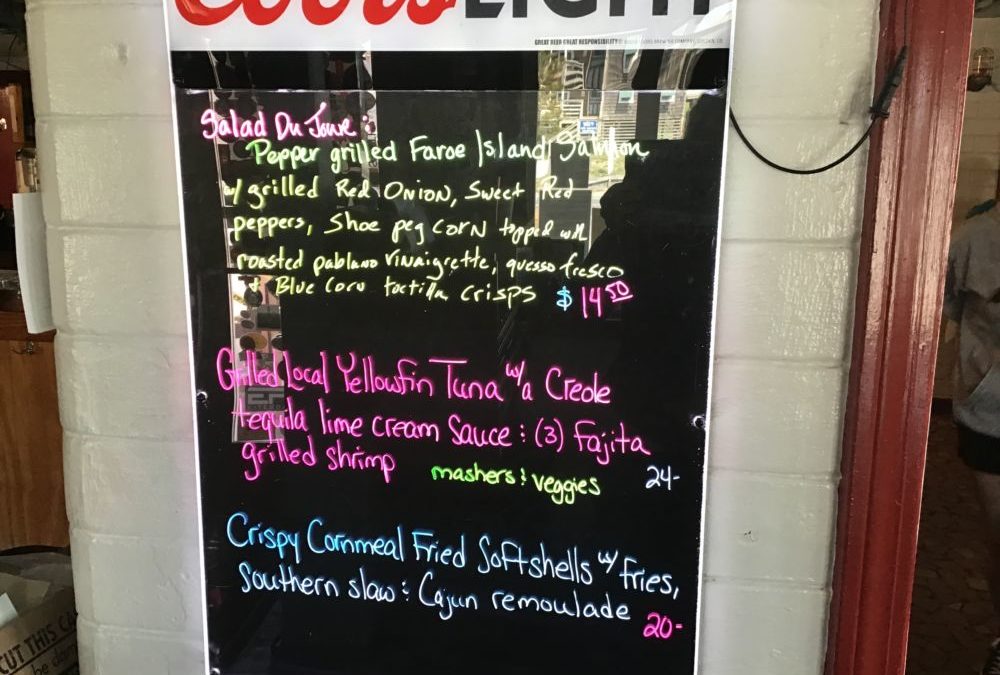 Coors LIGHT
GREAT BEER GREAT RESPONSIBILITY
Salad Du Joure:
Pepper grilled Faroe Island Salmon
w/ grilled Red ONION, Sweet Red
peppers, Shoe peg CORN topped with
roasted pablano Vinaigrette, quesso fresco
+ Blue Corn tortilla CRISPS $14.50
Grilled Local Yellowfin Tuna w/a Creole
tequila lime cream Sauce & (3) Fajita
grilled shrimp mashers & veggies 24-
Crispy Cornmeal Fried Softshells w/ fries,
Southern slaw & Cajun remoulade 20-
CUT THIS